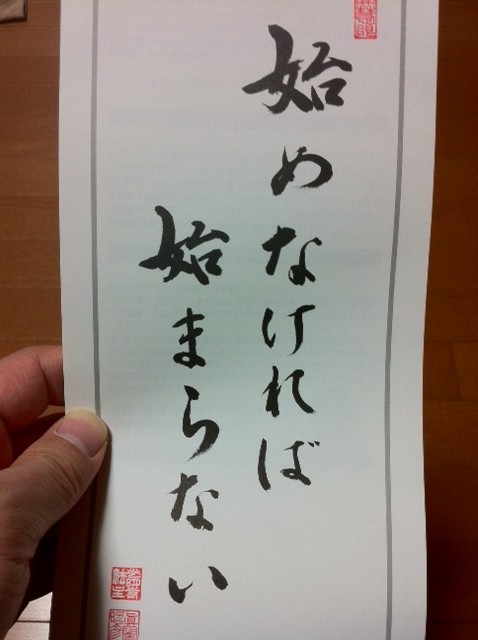 始めなければ
始まらない